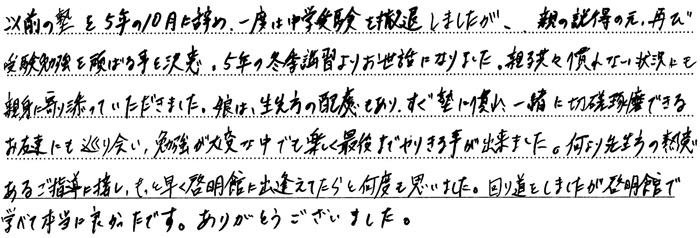 以前の塾を5年の10月に辞め、一度は中学受験を撤退しましたが、、親の説得の元、再び
受験勉強を頑ばる事を決意。5年の冬季講習よりお世話になりました。親子共々慣れない状況にも
親身に寄り添っていただきました。娘は、先生方の配慮もあり、すぐ塾に慣れ一緒に切磋琢磨できる
お友達にも巡り会い、勉強が大変な中でも楽しく最後までやりきる事が出来ました。何より先生方の熱意
あるご指導に接し、もっと早く啓明館に出逢えてたらと何度も思いました。回り道をしましたが啓明館で
学べて本当に良かったです。ありがとうございました。